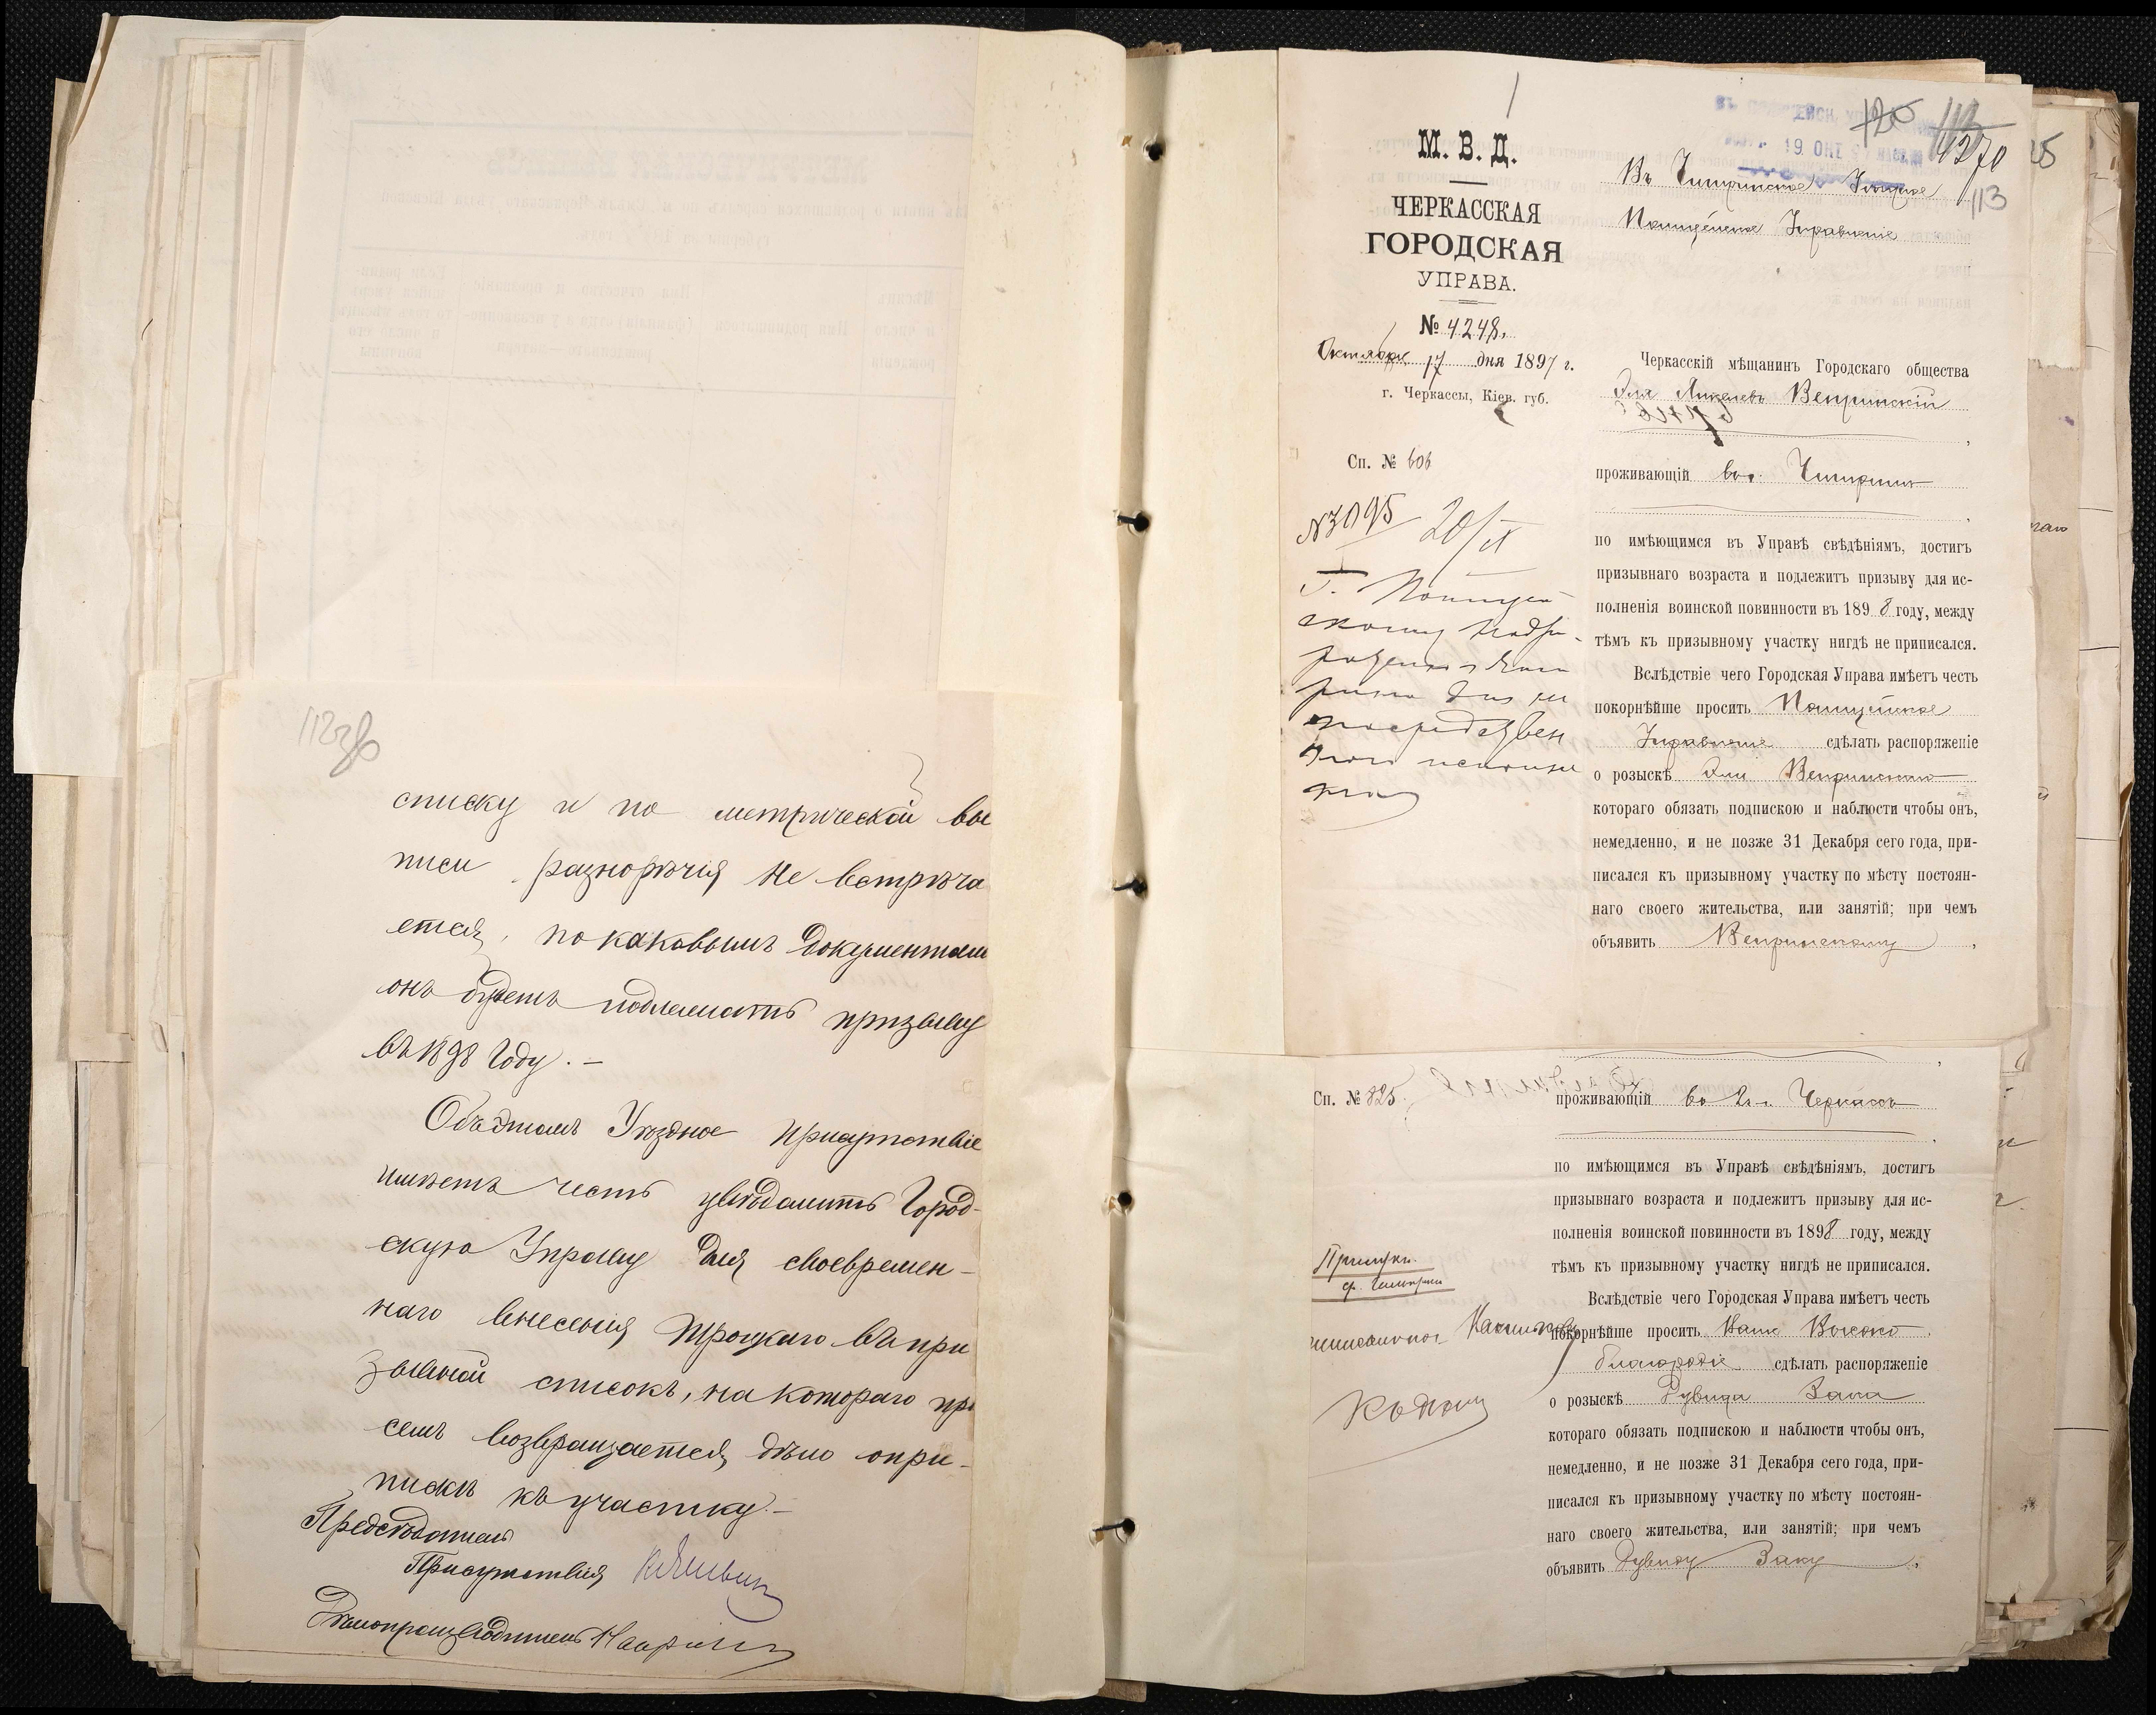 112 об
списку и по метрической вы
писи разнорѣчія не встрѣча
ется, по каковымъ документам
онъ будетъ подлежать призыву
въ 1898 году. –
Объ этомъ Уѣздное Присутствіе
имѣетъ честь увѣдомить Город-
скую Управу для своевремен-
наго внесенія Троцкаго въ при
зывной списокъ, на котораго при
семъ возвращается дѣло о при-
пискѣ къ участку. –
Предсѣдатель
Присутствія
Дѣлопроизводитель
М. В. Д.
ЧЕРКАССКАЯ
ГОРОДСКАЯ
УПРАВА.
№ 4248.
Октября 17 дня 1897 г.
г. Черкассы, Кіев. губ.
Сп. № 606
№3095 20/IX
Г. Полицей
скому Надзи-
рателю г. Чиги
рина для не
посредствен
наго исполне
нія
120 113
19 ОКТ
4270
113
Въ Чигиринское Уѣздное
Полицейское Управленіе
Черкасскій мѣщанинъ Городскаго общества
Эля Веприцскій
проживающій въ г. Чигиринѣ
по имѣющимся въ Управѣ свѣдѣніямъ, достигъ
призывнаго возраста и подлежитъ призыву для ис-
полненія воинской повинности въ 1898 году, между
тѣмъ къ призывному участку нигдѣ не приписался.
Вслѣдствіе чего Городская Управа имѣетъ честь
покорнѣйше просить Полицейское
Управленіе сдѣлать распоряженіе
о розыскѣ Эли Веприцскаго
котораго обязать подпискою и наблюсти чтобы онъ,
немедленно, и не позже 31 Декабря сего года, при-
писался къ призывному участку по мѣсту постоян-
наго своего жительства, или занятій; при чемъ
объявить Веприцскому,
Сп. № 825
проживающій въ г. Черкассѣ
по имѣющимся въ Управѣ свѣдѣніямъ, достигъ
призывнаго возраста и подлежитъ призыву для ис-
полненія воинской повинности въ 1898 году, между
тѣмъ къ призывному участку нигдѣ не приписался.
Вслѣдствіе чего Городская Управа имѣетъ честь
покорнѣйше просить Ваше Высоко
благородіе сдѣлать распоряженіе
о розыскѣ Дувида Зака
котораго обязать подпискою и наблюсти чтобы онъ,
немедленно, и не позже 31 Декабря сего года, при-
писался къ призывному участку по мѣсту постоян-
наго своего жительства, или занятій; при чемъ
объявить Дувиду Заку,